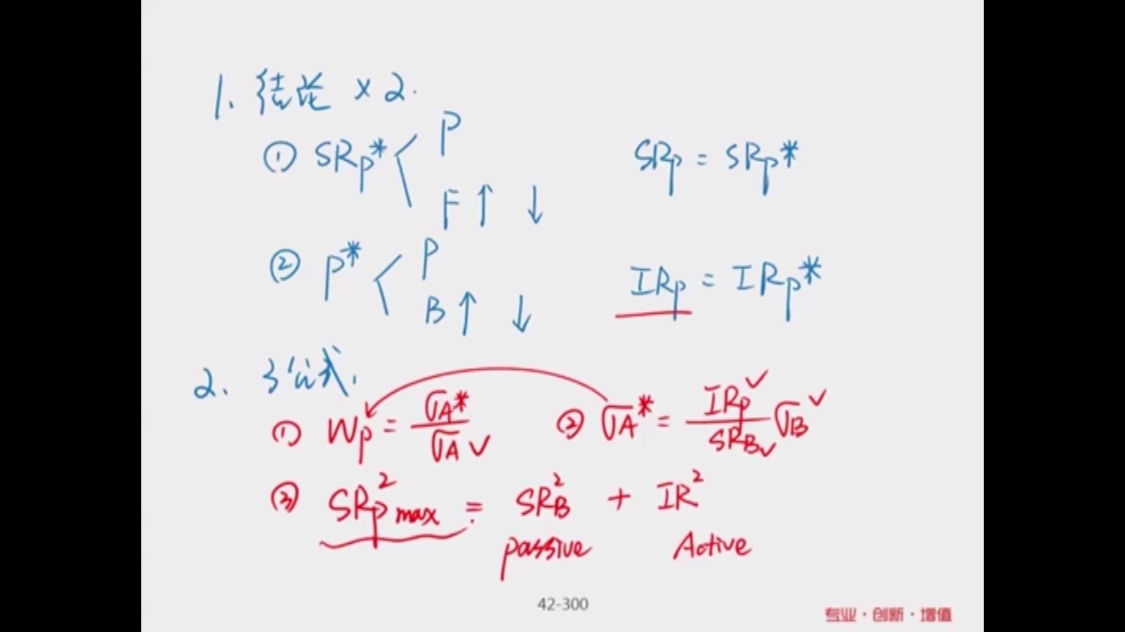 1. 结论 ×2.
① SRp* < P SRp = SRp*
F↑ ↓
② P* < P IRp = IRp*
B↑ ↓
2. 3公式.
① Wp = σA* / σA ✓ ② σA* = IRp ✓ / SRB ✓ σB ✓
③ SRp² max = SRB² + IR²
passive Active
42-300
专业·创新·增值